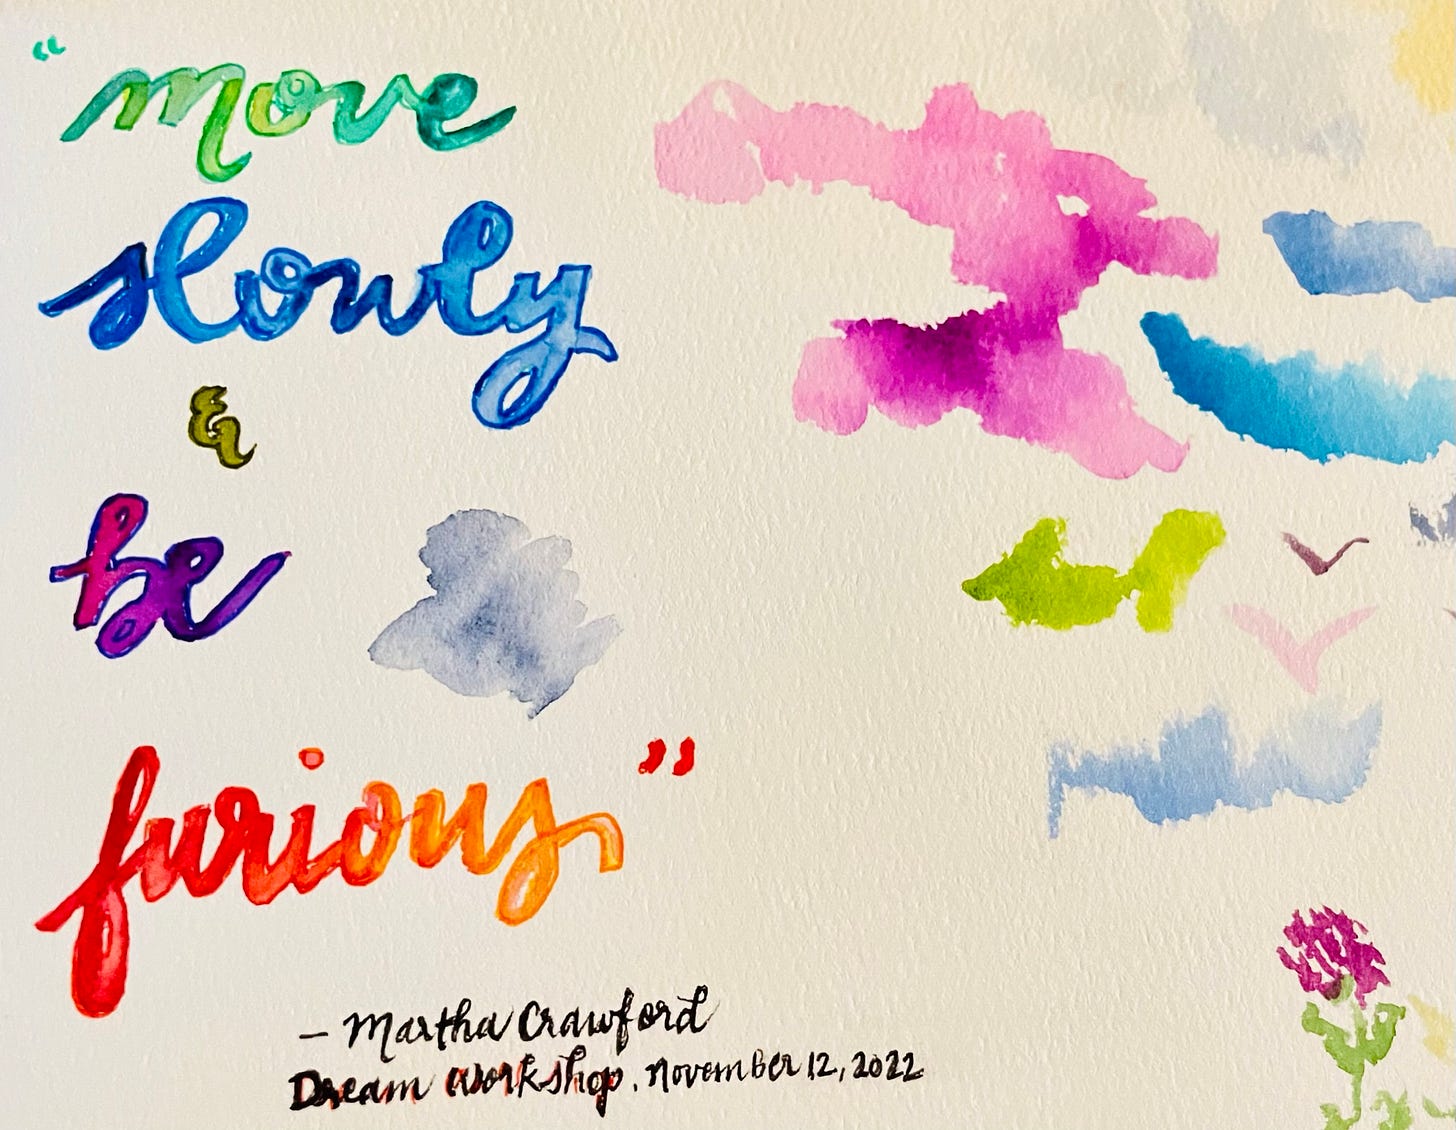 “move
slowly
&
be
furious”
– Martha Crawford
Dream Workshop. November 12, 2022